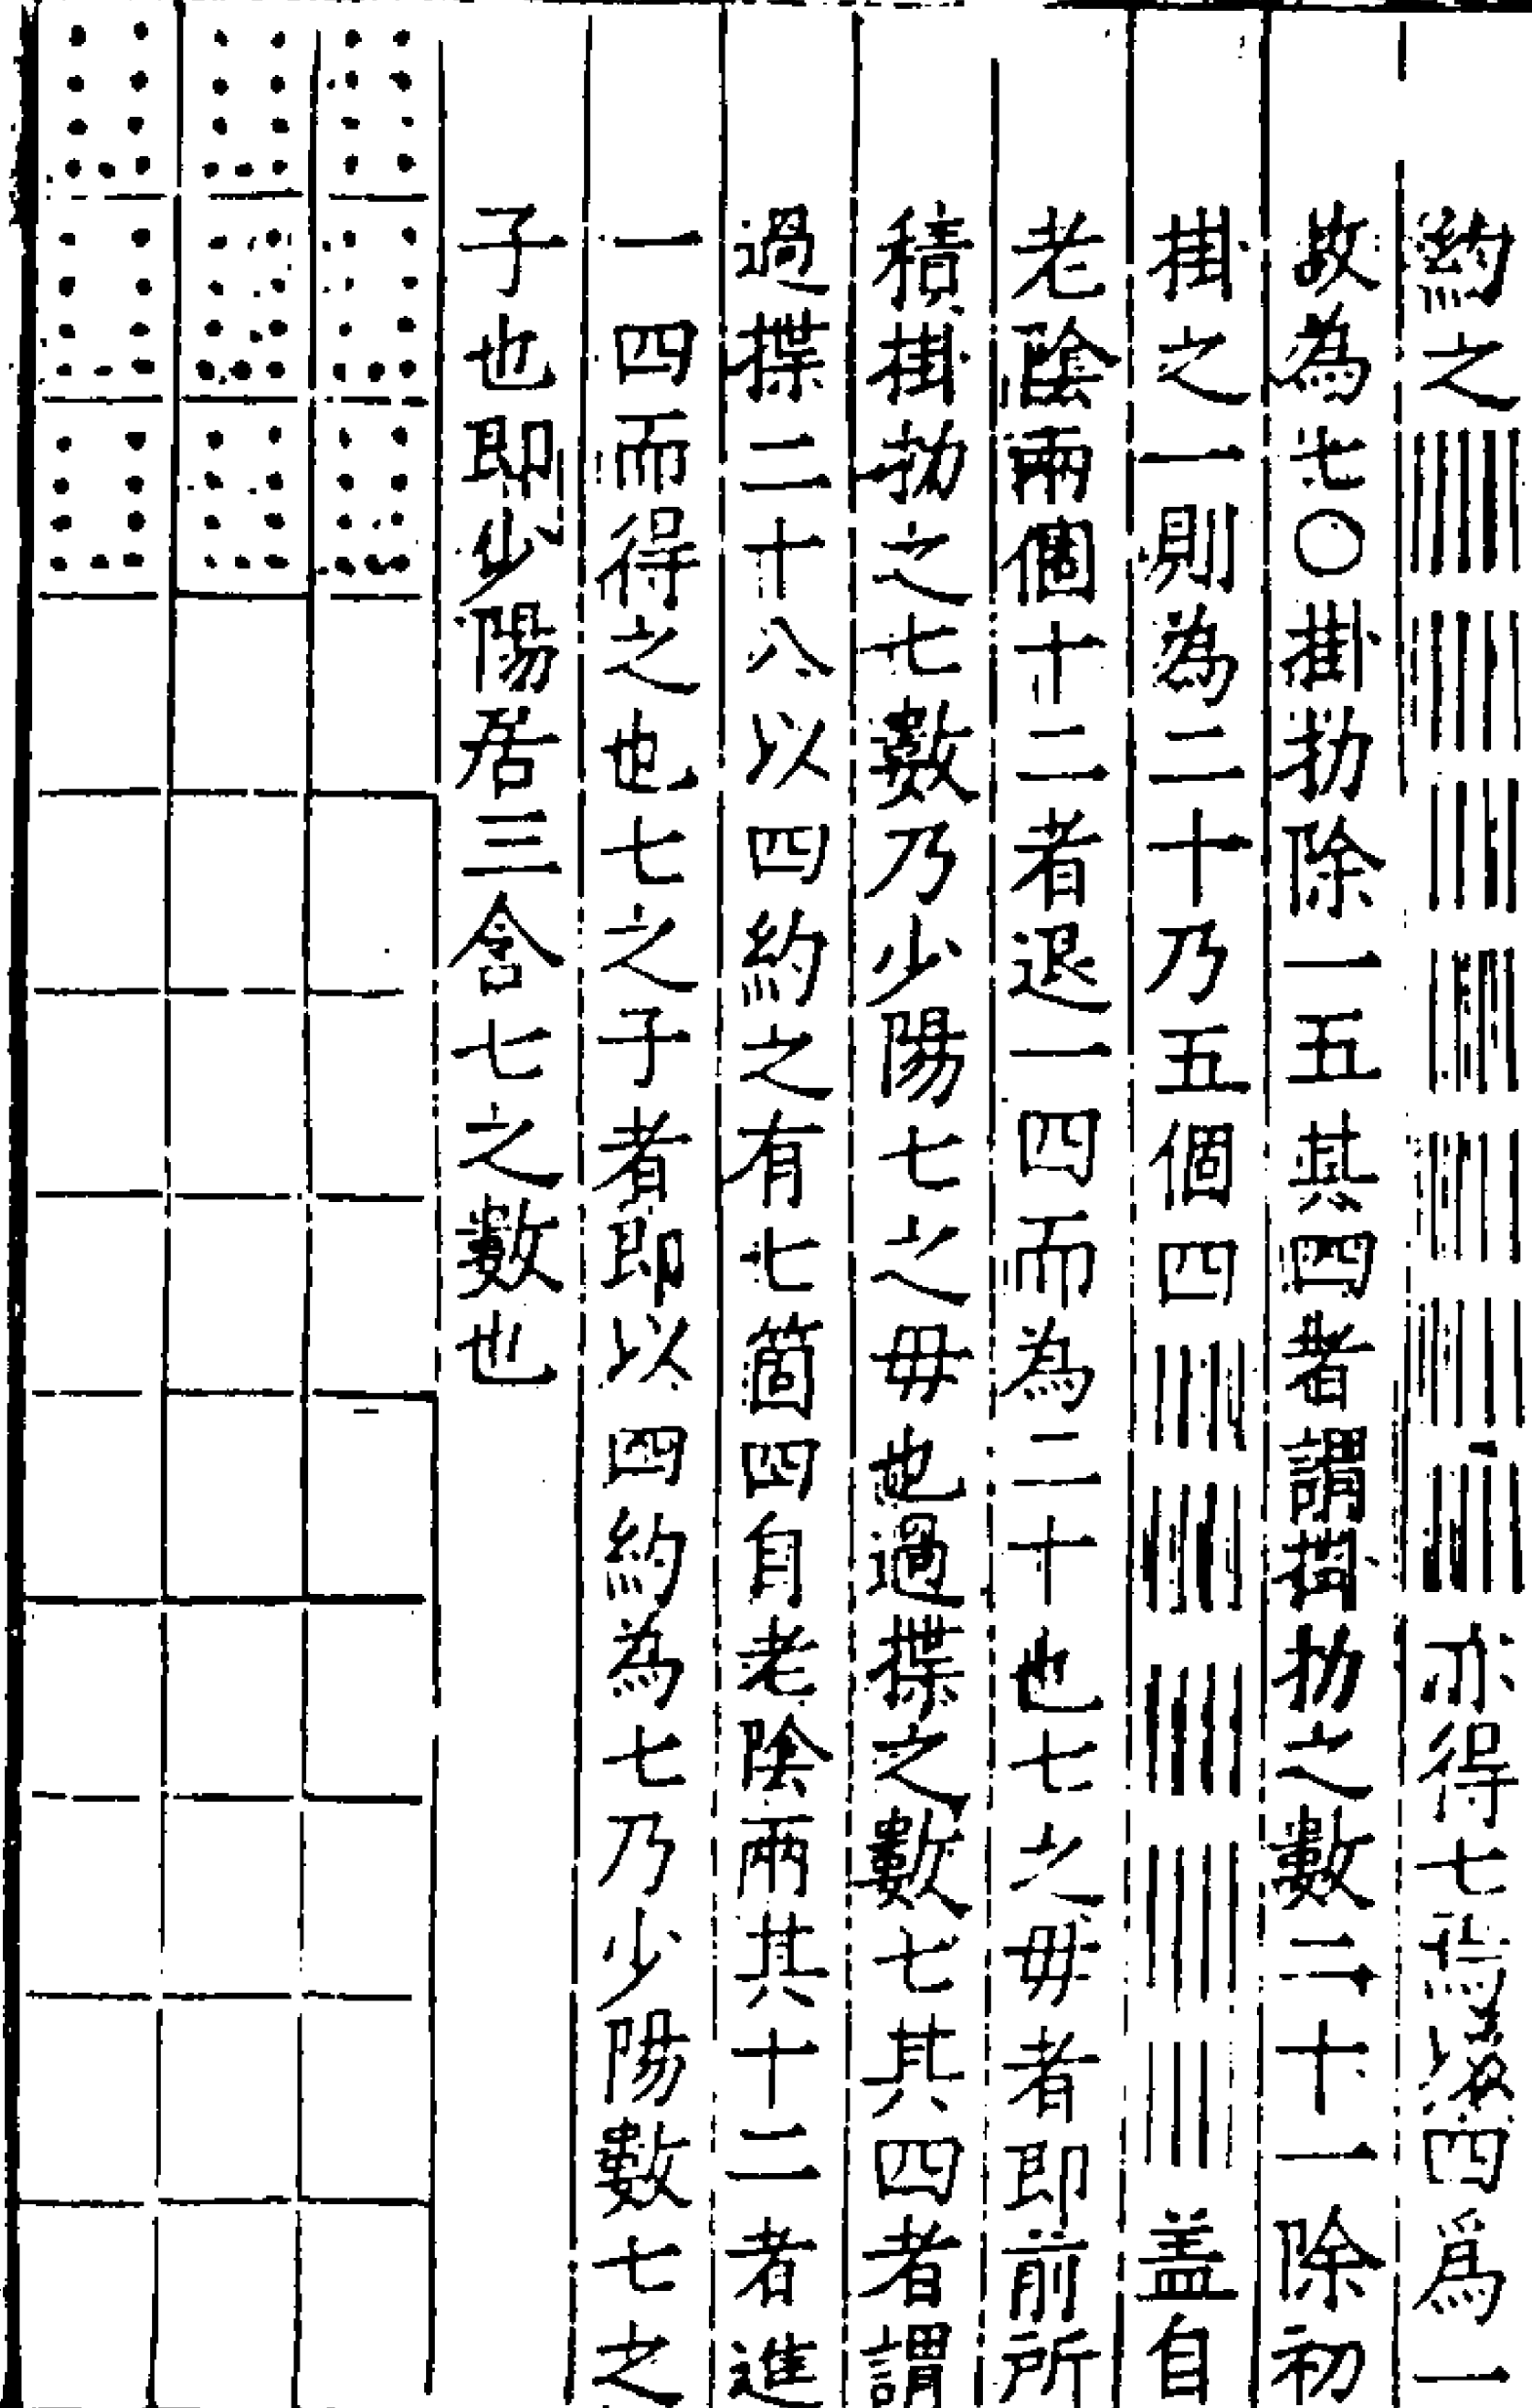 約之亦得七焉以四爲一
故為七〇掛扐除一五其四者謂掛扐之數二十一除初
掛之一則為二十乃五個四盖自
老陰兩個十二者退一四而為二十也七之毋者即前所
積掛扐之七數乃少陽七之毋也過揲之數七其四者謂
過揲二十八以四約之有七箇四自老陰兩其十二者進
一四而得之也七之子者即以四約為七乃少陽數七之
子也即少陽居三含七之數也